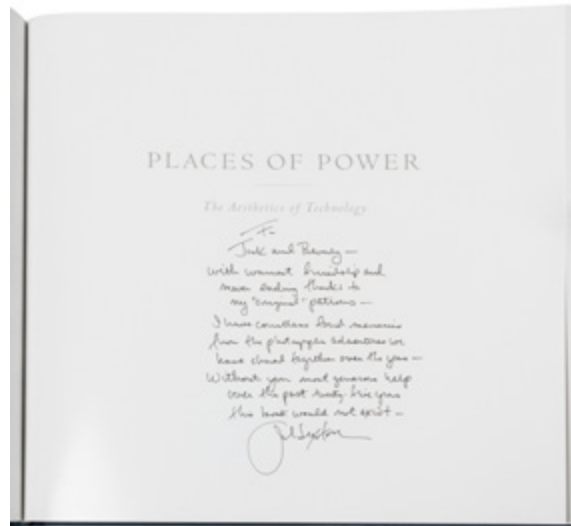 PLACES OF POWER
The Aesthetics of Technology
To
Jack and Beverly —
with warmest friendship and
never ending thanks to
my "original" patrons —
I have countless fond memories
from the photographic adventures we
have shared together over the years —
Without your most generous help
over the past twenty-five years
this book would not exist —
John Sexton